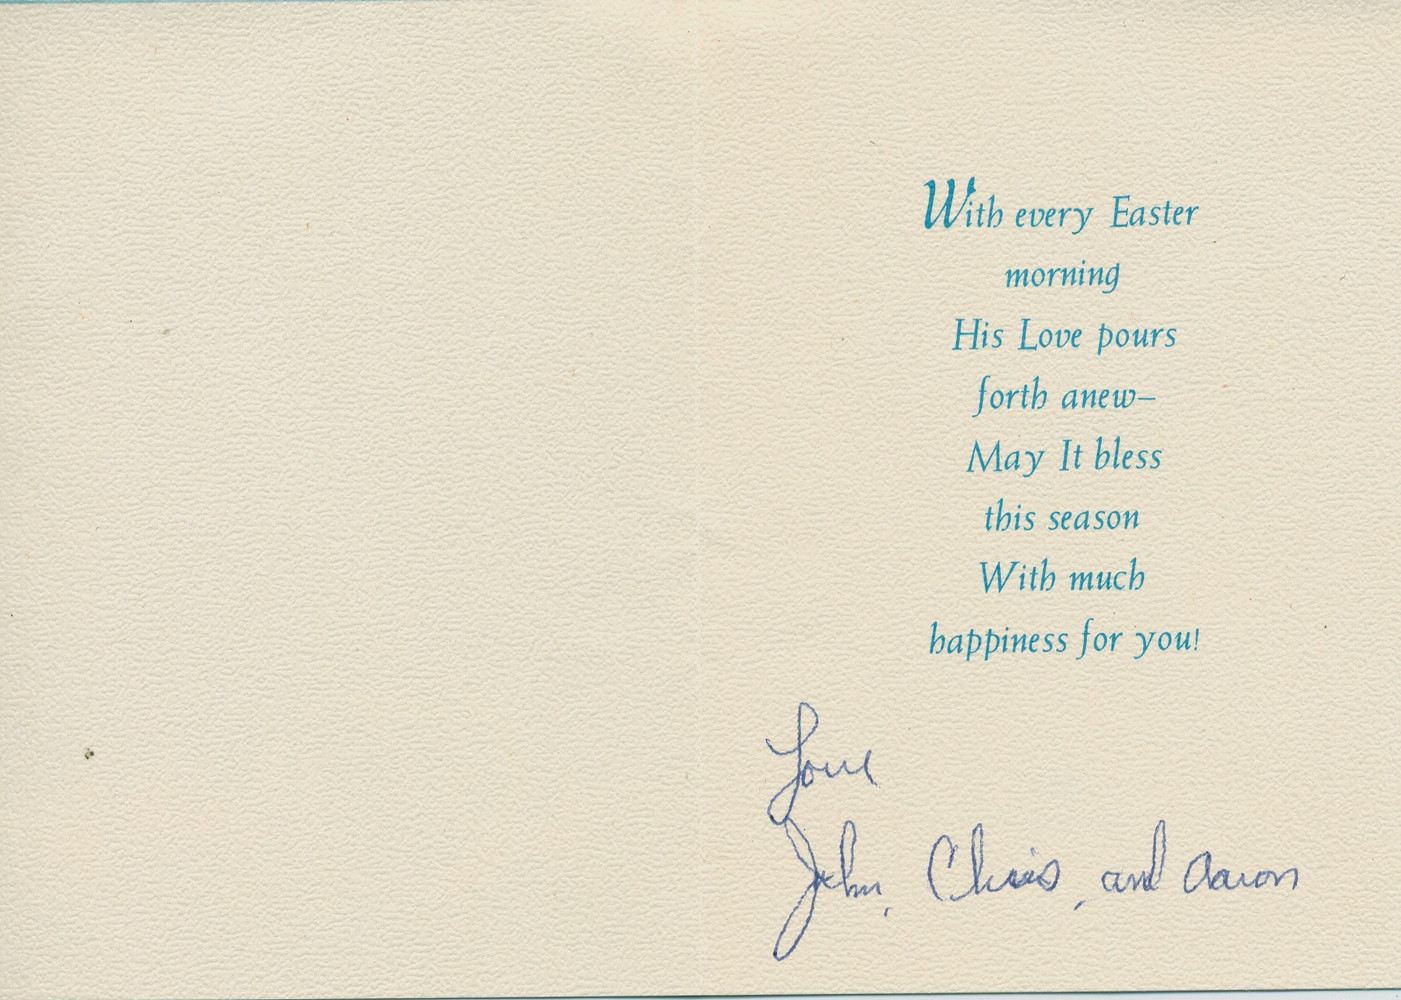 With every Easter
morning
His Love pours
forth anew–
May It bless
this season
With much
happiness for you!
Love
John, Chris, and Aaron